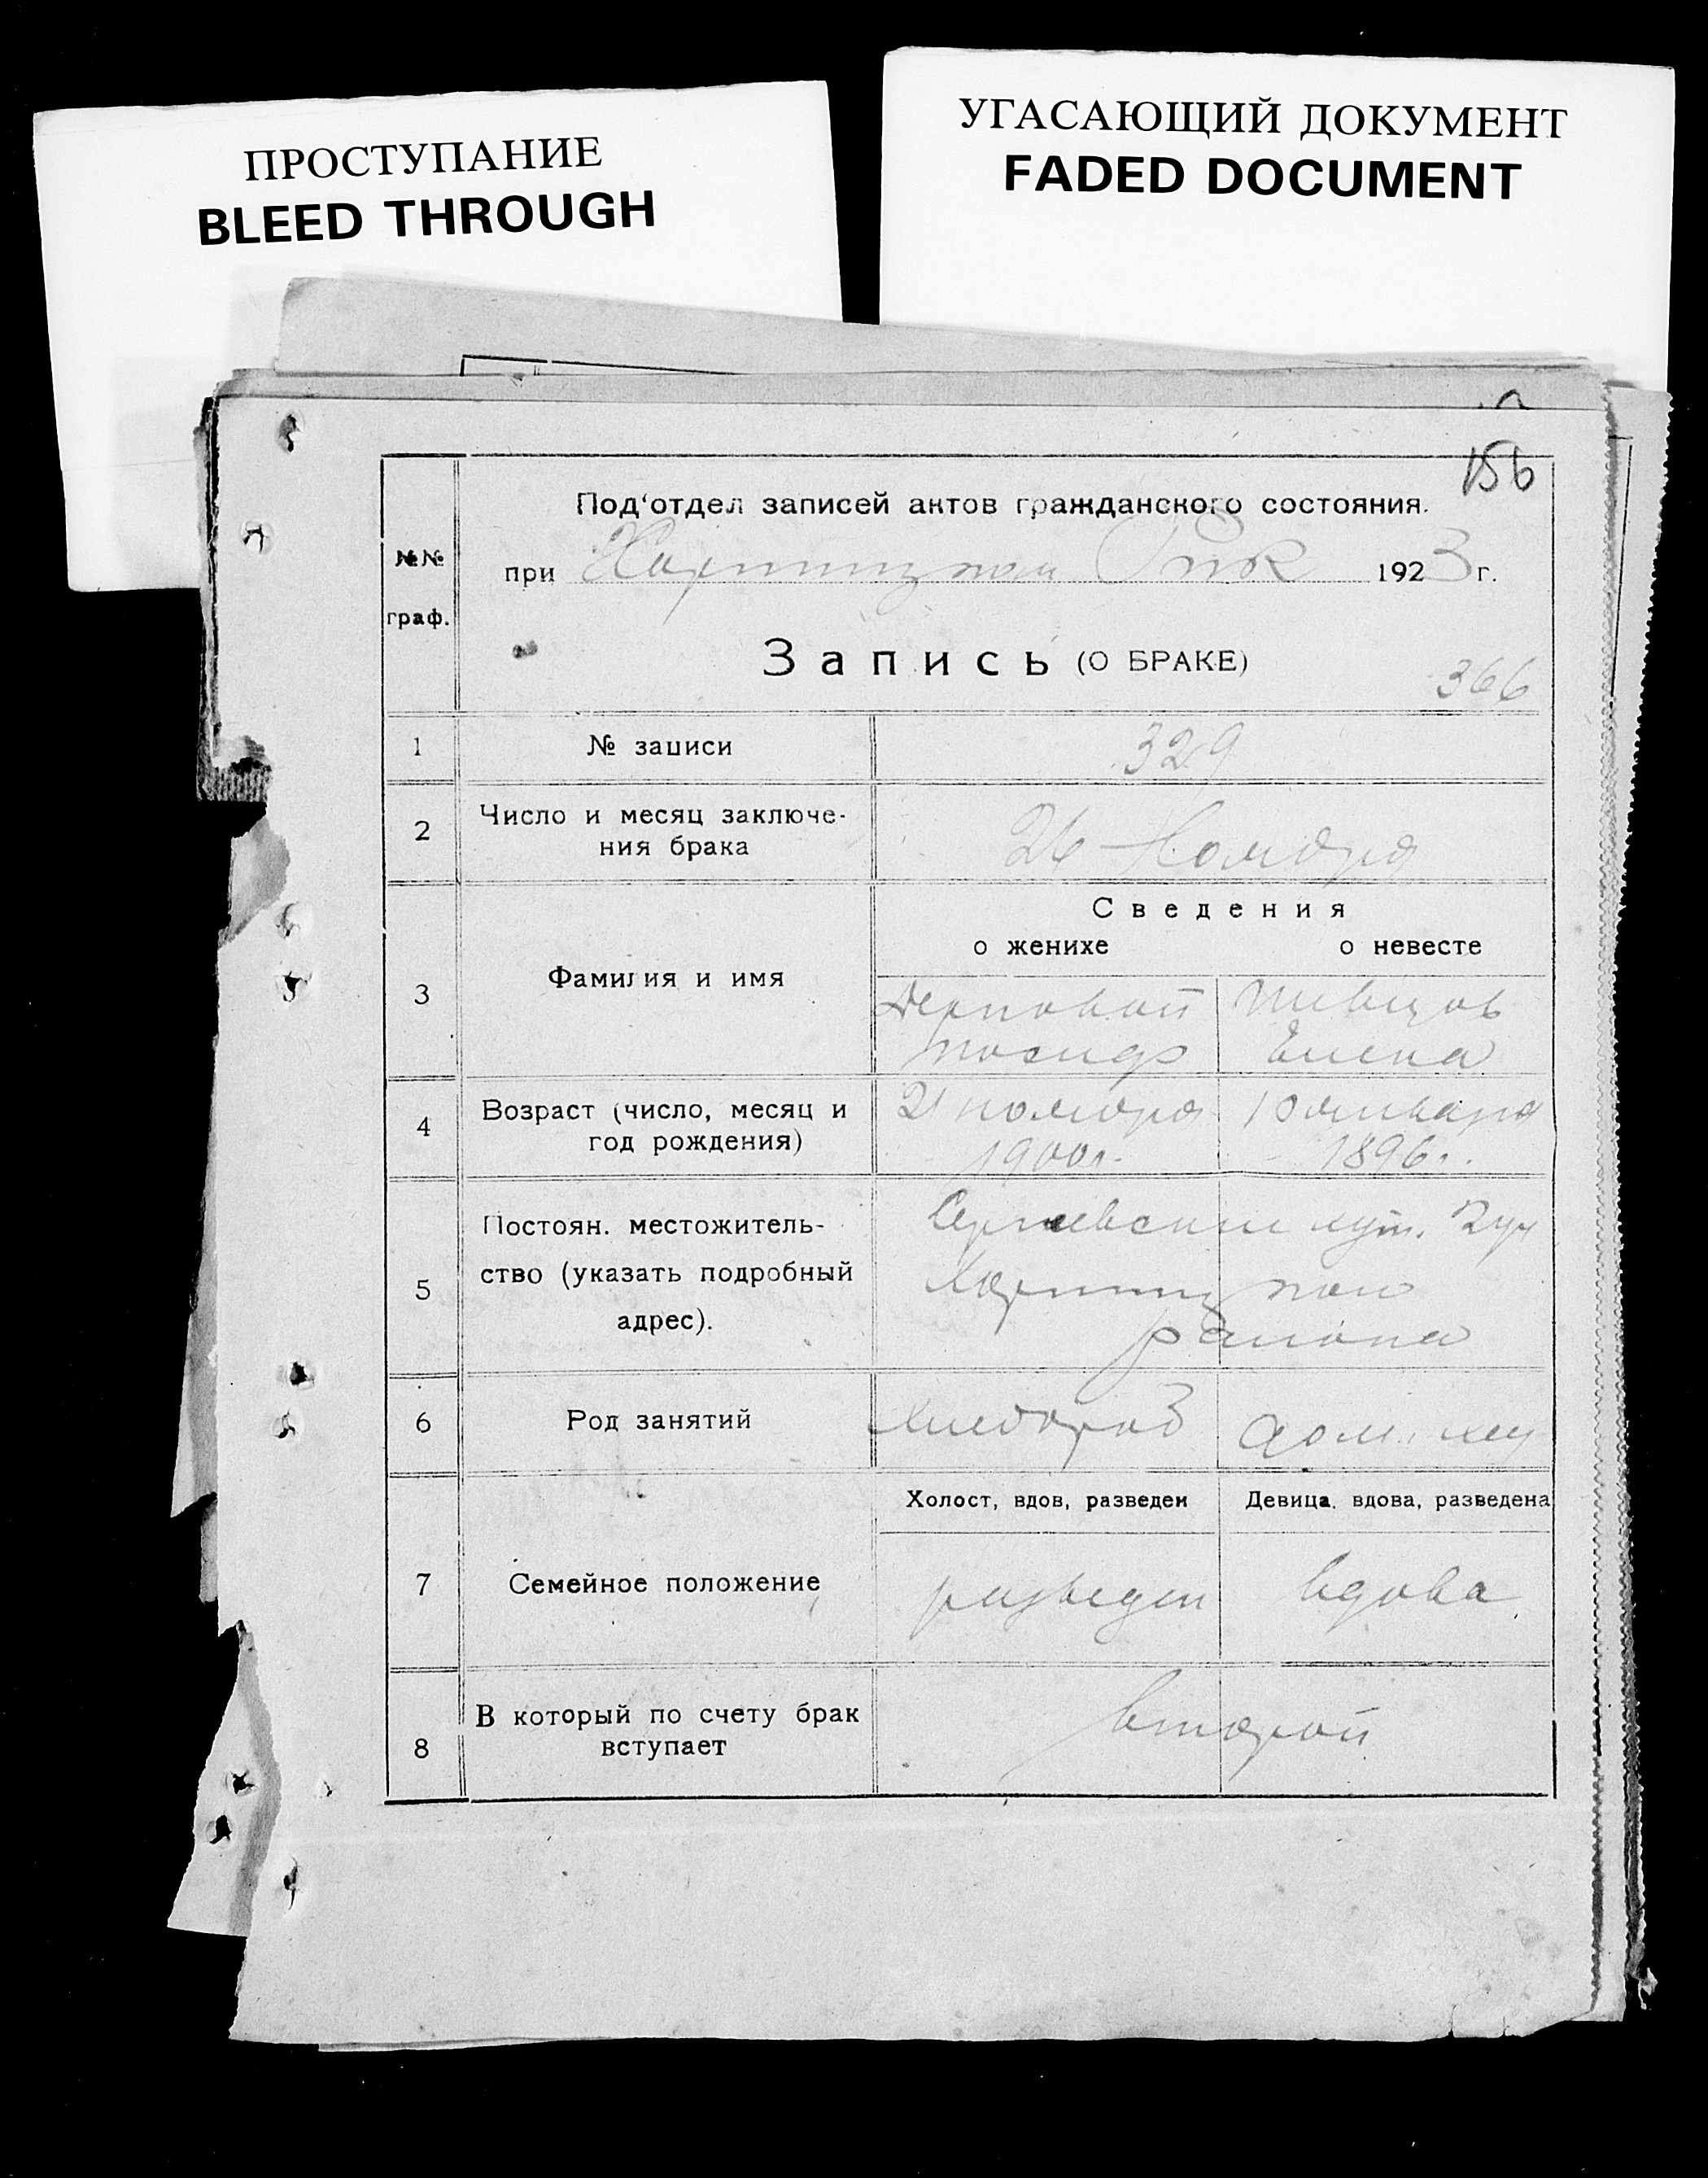 ПРОСТУПАНИЕ
BLEED THROUGH
УГАСАЮЩИЙ ДОКУМЕНТ
FADED DOCUMENT
156
Под'отдел записей актов гражданского состояния.
№№ граф.
при РИК 1923 г.
Запись (О БРАКЕ)
366
1 № записи 329
2 Число и месяц заключе-
ния брака 26 Ноября
Сведения
о женихе о невесте
3 Фамилия и имя
Швецов
Елена
4 Возраст (число, месяц и
год рождения)
21 ноября 10 января
1900г. 1896г.
5 Постоян. местожитель-
ство (указать подробный
адрес).
Сергиевский хут.
района
6 Род занятий Хлебороб дом. хоз
Холост, вдов, разведен Девица, вдова, разведена
7 Семейное положение разведен вдова
8 В который по счету брак
вступает второй